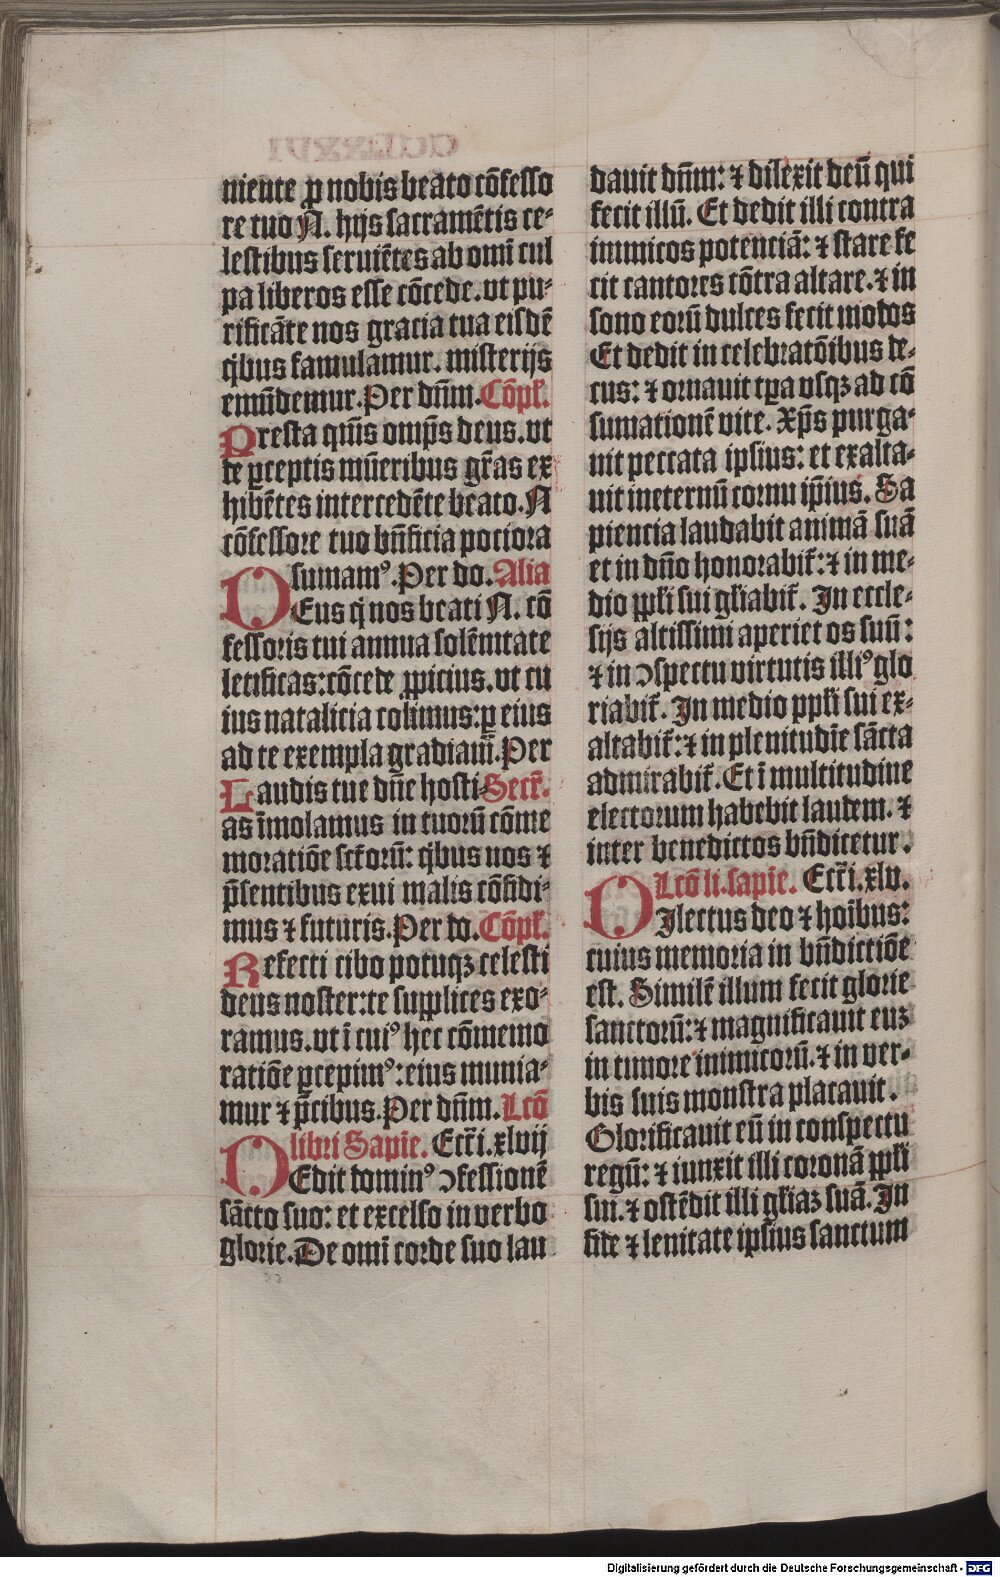 niente ꝓ nobis beato cõfesso
re tuo N. hijs sacramẽtis ce-
lestibus seruiẽtes ab omĩ cul
pa liberos esse cõcede. vt pu-
rificãte nos gracia tua eisdẽ
q̃bus famulamur. misterijs
emũdemur. Per dñm. Cõpł.
Presta q̃ms omp̃s deus. vt
de ꝑceptis mũeribus gr̃as ex
hibẽtes intercedẽte beato. N
cõfessore tuo bñficia pociora
sumamꝰ. Per do. Alia
DEus q̃ nos beati N. cõ
fessoris tui annua solẽnitate
letificas: cõcede ꝓpicius. vt cu
ius natalicia colimus: ꝑ eius
ad te exempla gradiam̃. Per
Laudis tue dñe hosti- Secr̃.
as ĩmolamus in tuorũ cõme
moratiõe sctõrũ: q̃bus nos ⁊
p̃sentibus exui malis cõfidi-
mus ⁊ futuris. Per do. Cõpł.
Refecti cibo potuqꝫ celesti
deus noster: te supplices exo-
ramus. vt ĩ cuiꝰ hec cõmemo
ratiõe ꝑcepimꝰ: eius munia-
mur ⁊ p̃cibus. Per dñm. Lcõ
libri Sapie. Ecc̃i. xlvij
DEdit dominꝰ ↄfessionẽ
sãcto suo: et excelso in verbo
glorie. De omĩ corde suo lau
dauit dñm: ⁊ dilexit deũ qui
fecit illũ. Et dedit illi contra
inimicos potenciã: ⁊ stare fe
cit cantores cõtra altare. ⁊ in
sono eorũ dulces fecit modos
Et dedit in celebratõibus de-
cus: ⁊ ornauit tꝑa vsqꝫ ad cõ
sumationẽ vite. Xp̃s purga-
uit peccata ipsius: et exalta-
uit ineternũ cornu ip̃ius. Sa
piencia laudabit animã suã
et in dño honorabit̃: ⁊ in me-
dio ppłi sui gliabit̃. In eccle-
sijs altissimi aperiet os suũ:
⁊ in ↄspectu virtutis illiꝰ glo
riabit̃. In medio ppłi sui ex-
altabit̃: ⁊ in plenitudĩe sãcta
admirabit̃. Et ĩ multitudine
electorum habebit laudem. ⁊
inter benedictos bñdicetur.
Lcõ li. sapĩe. Ecc̃i. xlv.
DIlectus deo ⁊ hoĩbus:
cuius memoria in bñdictiõe
est. Similẽ illum fecit glorie
sanctorũ: ⁊ magnificauit euꝫ
in timore inimicorũ. ⁊ in ver-
bis suis monstra placauit.
Glorificauit eũ in conspectu
regũ: ⁊ iunxit illi coronã ppłi
sui. ⁊ ostẽdit illi głiaꝫ suã. In
fide ⁊ lenitate ip̃ius sanctum
Digitalisierung gefördert durch die Deutsche Forschungsgemeinschaft - DFG